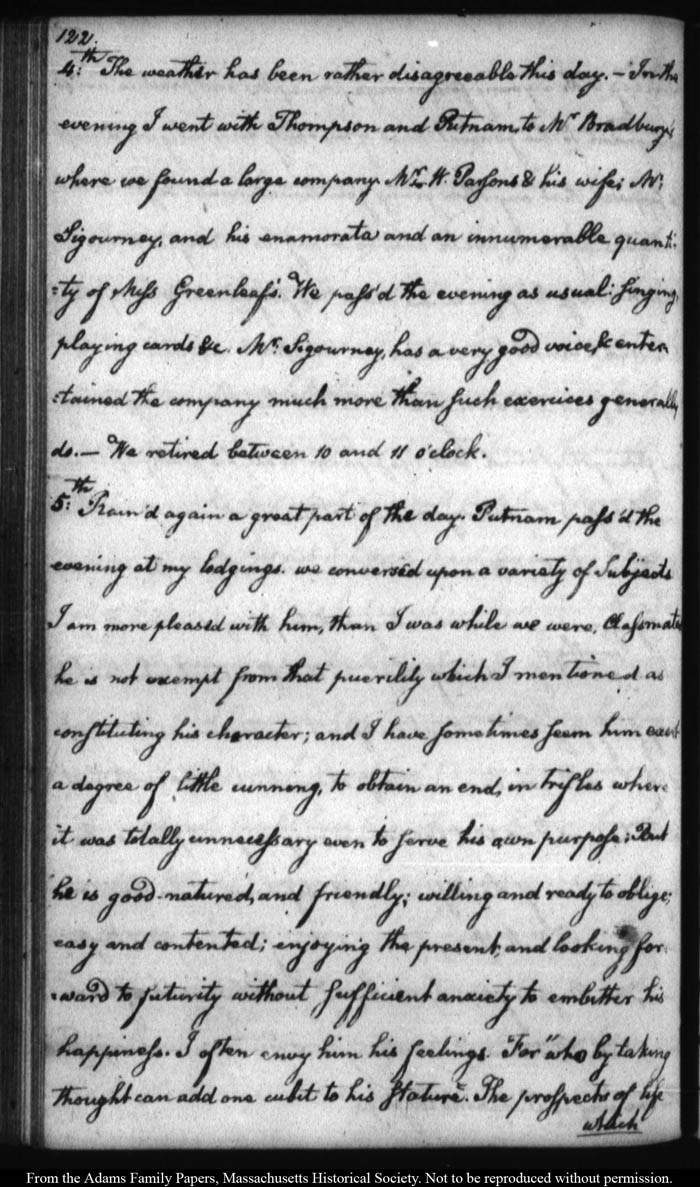 122.
4:th The weather has been rather disagreeable this day. — In the
evening I went with Thompson and Putnam, to Mr Bradbury's
where we found a large company. Mr. W. Parsons & his wife; Mr:
Sigourney, and his enamorata and an innumerable quanti:
:ty of Miss Greenleaf's. We pass'd the evening as usual: singing,
playing cards &c. Mr. Sigourney, has a very good voice, & enter
:tained the company much more than such exercices generally
do. — We retired between 10 and 11 o'clock.
5:th Rain'd again a great part of the day. Putnam pass'd the
evening at my lodgings. we conversed upon a variety of Subjects
I am more pleased with him, than I was while we were, Classmates
he is not exempt from that puerility which I mentioned as
constituting his character; and I have sometimes seem him exert
a degree of little cunning, to obtain an end, in trifles where
it was totally unnecessary even to serve his own purpose; But
he is good-natured, and friendly; willing and ready to oblige;
easy and contented; enjoying the present, and looking for
:ward to futurity without sufficient anxiety to embitter his
happiness. I often envy him his feelings. For "who by taking
thought can add one cubit to his stature". The prospects of life
which
From the Adams Family Papers, Massachusetts Historical Society. Not to be reproduced without permission.